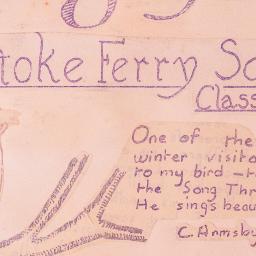 toke Ferry Sc
Class
One of the
winter visito
to my bird – t
the Song Thr
He sings beau
C. Armsby